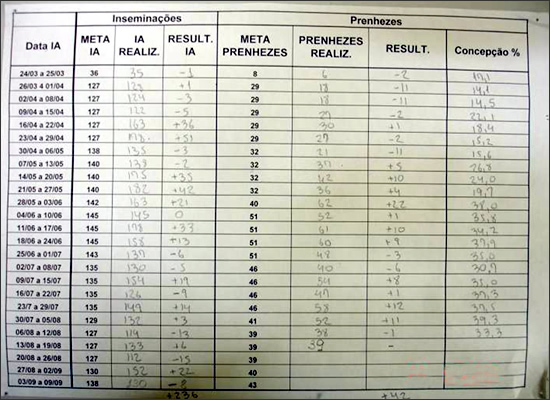 Inseminações Prenhezes
Data IA META IA IA REALIZ. RESULT. IA META PRENHEZES PRENHEZES REALIZ. RESULT. Concepção %
24/03 a 25/03 36 35 -1 8 6 -2 17,1
26/03 a 01/04 127 128 +1 29 18 -11 14,1
02/04 a 08/04 127 124 -3 29 18 -11 14,5
09/04 a 15/04 127 122 -5 29 27 -2 22,1
16/04 a 22/04 127 163 +36 29 30 +1 18,4
23/04 a 29/04 127 178 +51 29 27 -2 15,2
30/04 a 06/05 138 135 -3 32 21 -11 15,6
07/05 a 13/05 140 138 -2 32 37 +5 26,8
14/05 a 20/05 140 175 +35 32 42 +10 24,0
21/05 a 27/05 140 182 +42 32 36 +4 19,7
28/05 a 03/06 142 163 +21 40 62 +22 38,0
04/06 a 10/06 145 145 0 51 52 +1 35,8
11/06 a 17/06 145 178 +33 51 61 +10 34,2
18/06 a 24/06 145 158 +13 51 60 +9 37,9
25/06 a 01/07 143 137 -6 51 48 -3 35,0
02/07 a 08/07 135 130 -5 46 40 -6 30,7
09/07 a 15/07 135 154 +19 46 54 +8 35,0
16/07 a 22/07 135 126 -9 46 47 +1 37,3
23/7 a 29/07 135 149 +14 46 58 +12
30/07 a 05/08 129 132 +3 41 52 +11 39,3
06/08 a 12/08 127 114 -13 39 38 -1 33,3
13/08 a 19/08 127 133 +6 39 39 -
20/08 a 26/08 127 112 -15 39
27/08 a 02/09 130 152 +22 40
03/09 a 09/09 138 130 -8 43
+236 +42